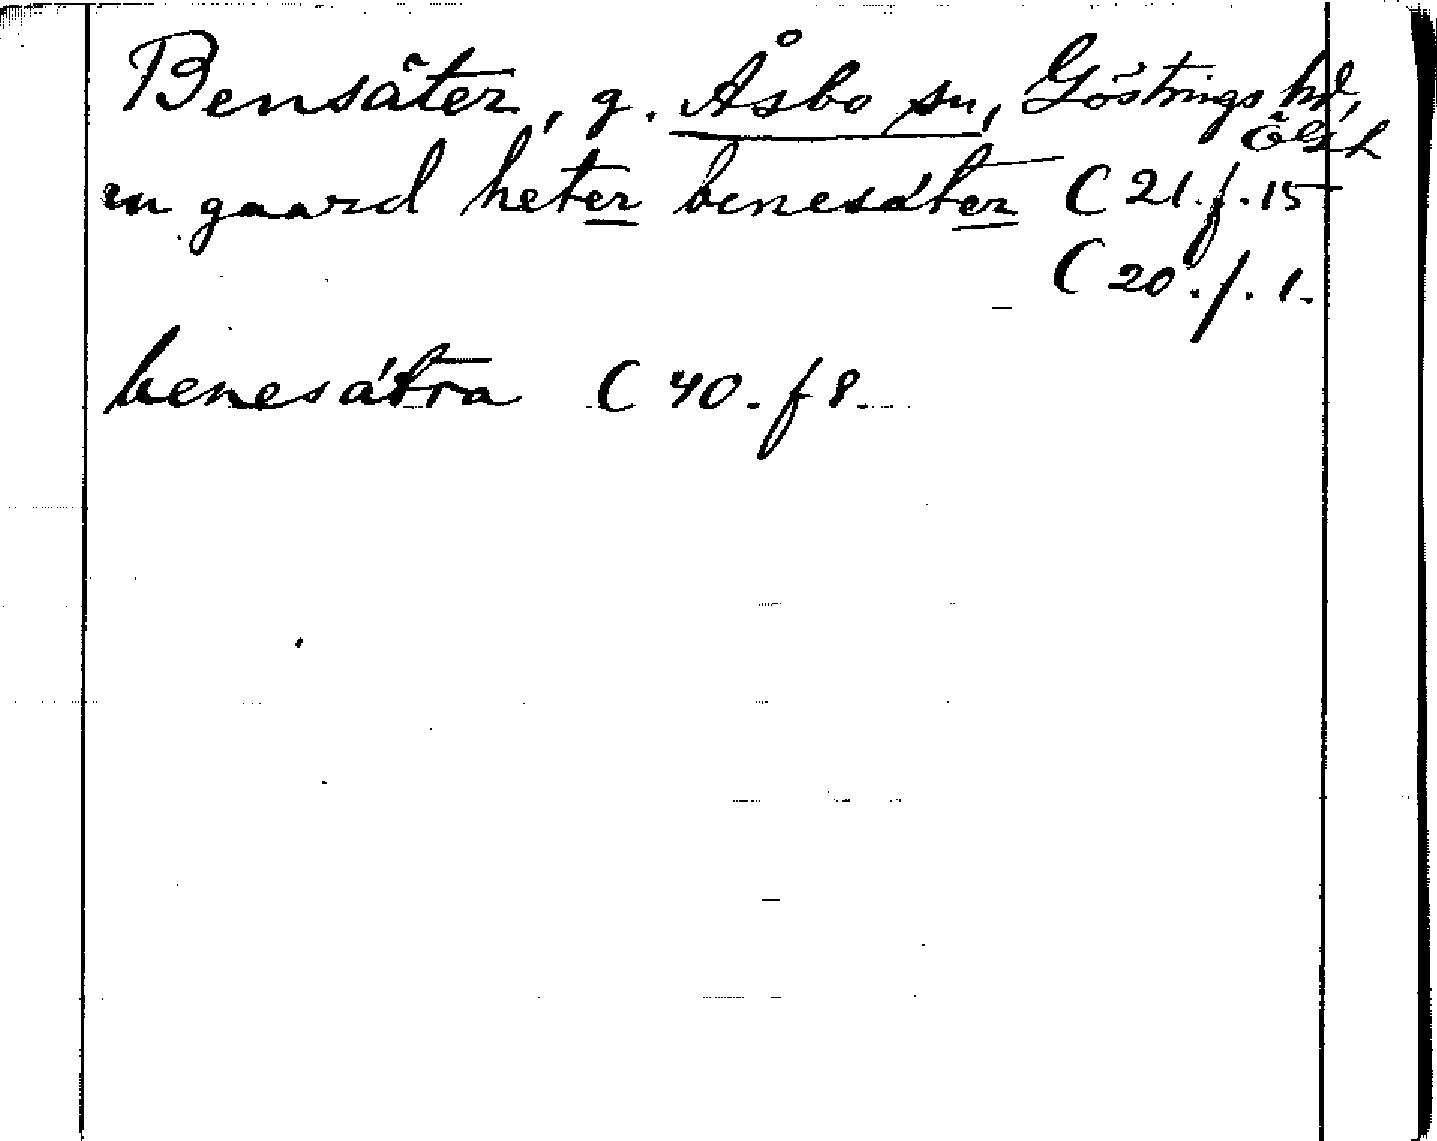 Bensäter, g. Åsbo sn, Göstrings hd,
Ögtl
en gaard heter benesáter C 21. f. 15
C 20. f. 1.
benesátra C 40. f 8.